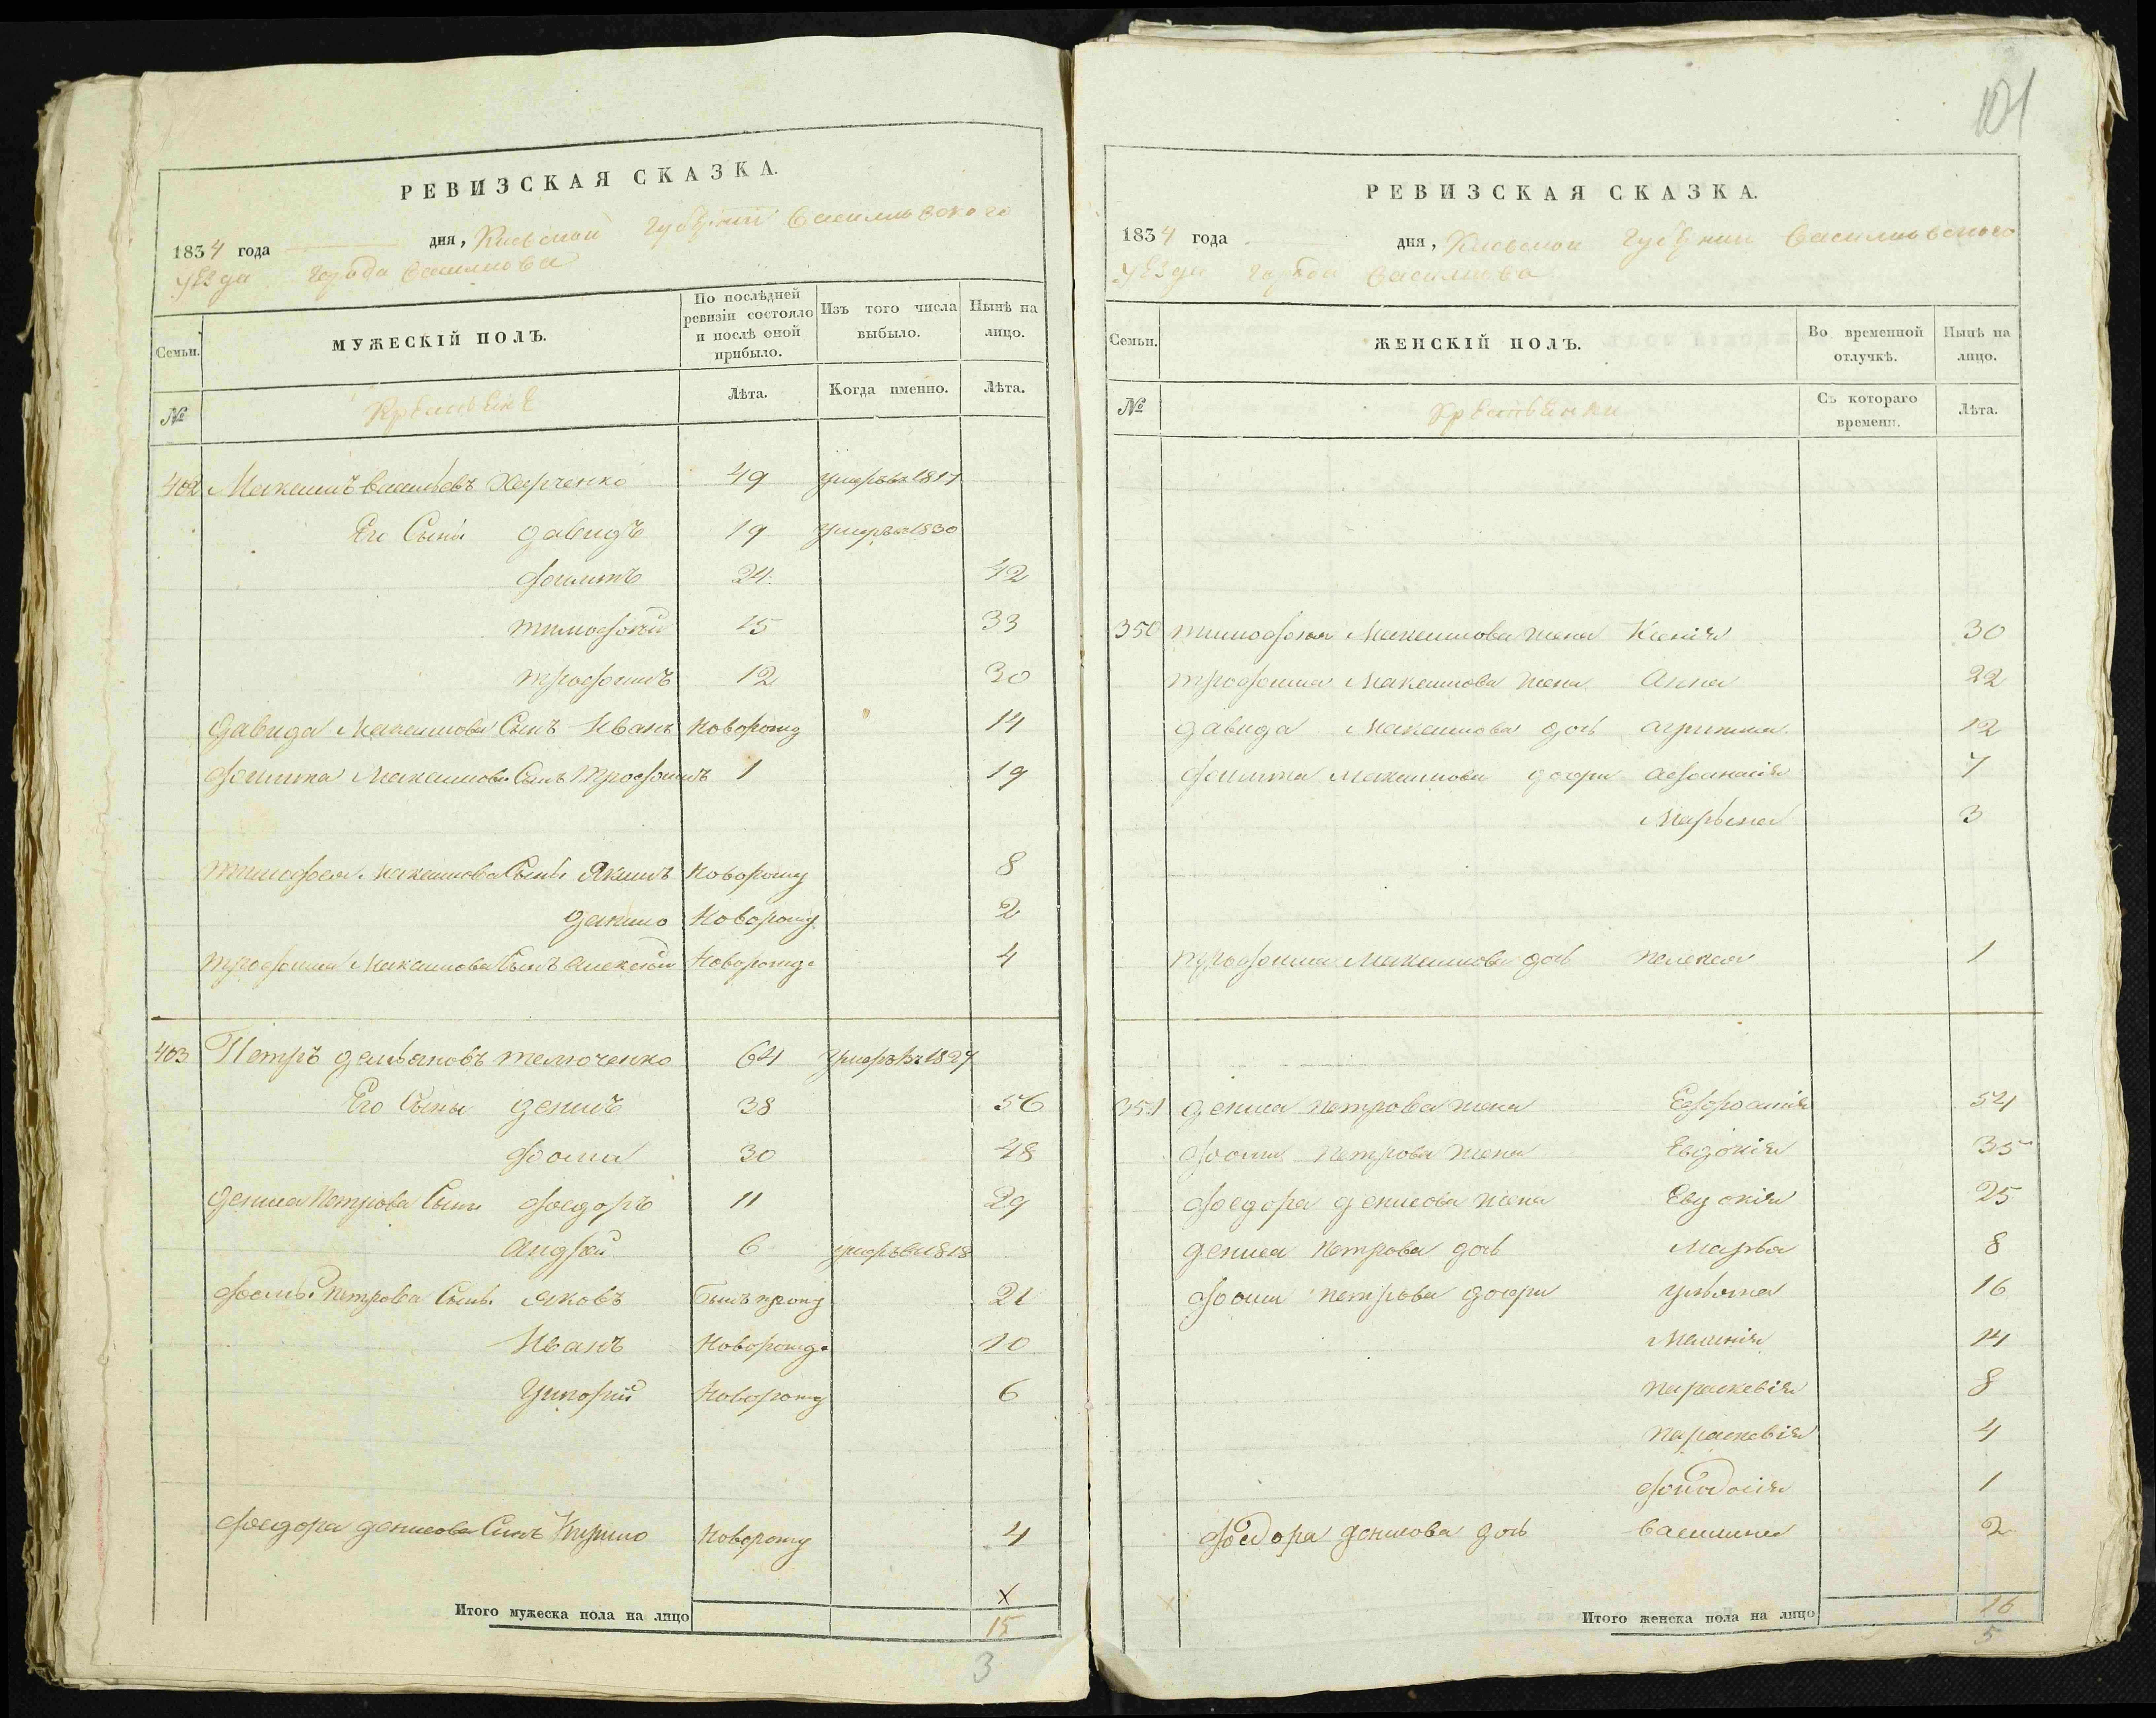 РЕВИЗСКАЯ СКАЗКА.
1834 года дня, Киевской Губернии Васильковского
уезда города Василькова
Семьи. МУЖЕСКІЙ ПОЛЪ. По послѣдней ревизіи состояло и послѣ оной прибыло. Изъ того числа выбыло. Нынѣ на лицо.
№ Крестьяне Лѣта. Когда именно. Лѣта.
402 Максимъ Васильевъ Харченко 49 умеръ въ 1817
Его Сыны давидъ 19 умеръ в 1830
Филипъ 24 42
тимофѣй 15 33
трофимъ 12 30
давида Максимова Сынъ Иванъ Новорожд 14
Филипа Максимова Сынъ трофимъ 1 19
тимофея Максимова Сыны Якимъ Новорожд 8
данило Новорожд 2
трофима Максимова Сынъ алексѣй Новорожд. 4
403 Петръ демьяновъ телюченко 64 умеръ въ 1827
Его Сыны денисъ 38 56
Фома 30 48
дениса Петрова Сыны Федоръ 11 29
андрѣй 6 умеръ въ 1818
Фомы Петрова Сыны яковъ Былъ проп 21
Иванъ Новорожд. 10
Григорий Новорожд 6
Федора денисова Сынъ Кирило Новорожд 4
х
Итого мужеска пола на лицо 15
3
101
РЕВИЗСКАЯ СКАЗКА.
1834 года дня, Киевской Губернии Васильковского
уезда города Василькова
Семьи. ЖЕНСКІЙ ПОЛЪ. Во временной отлучкѣ. Нынѣ на лицо.
№ Крестьянки Съ котораго времени. Лѣта.
350 тимофея Максимова жена Ксенія 30
трофима Максимова жена анна 22
давида Максимова дочь агрипина 12
Филипа Максимова дочери афанасія 7
Марьяна 3
трофима Максимова дочь пелагея 1
351 дениса петрова жена Ефросинія 54
Фомы петрова жена Евдокія 35
Федора денисова жена Евдокія 25
дениса петрова дочь Марья 8
Фомы петрова дочери ульяна 16
Меланія 14
параскевія 8
параскевія 4
Феодосія 1
Федора денисова дочь василина 2
Итого женска пола на лицо 16
5